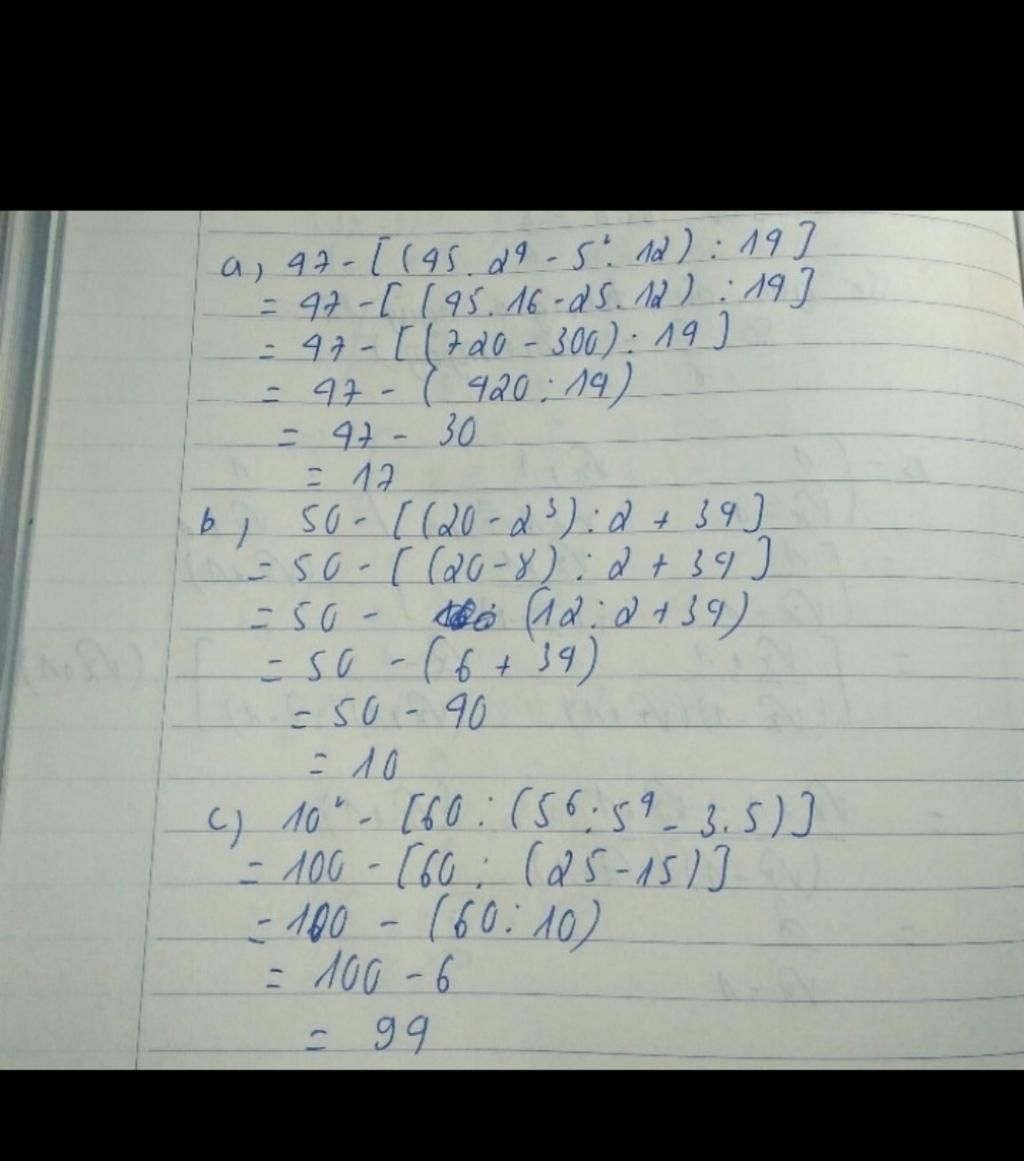 a) 47 - [(45. 2⁴ - 5². 12) : 14]
= 47 - [ (45. 16 - 25. 12) : 14]
= 47 - [(720 - 300) : 14]
= 47 - ( 420 : 14)
= 47 - 30
= 17
b) 50 - [(20 - 2³) : 2 + 34]
= 50 - [ (20 - 8) : 2 + 34]
= 50 - (12 : 2 + 34)
= 50 - (6 + 34)
= 50 - 40
= 10
c) 10² - [60 : (5⁶ : 5⁴ - 3. 5)]
= 100 - [60 : (25 - 15)]
= 100 - (60 : 10)
= 100 - 6
= 94